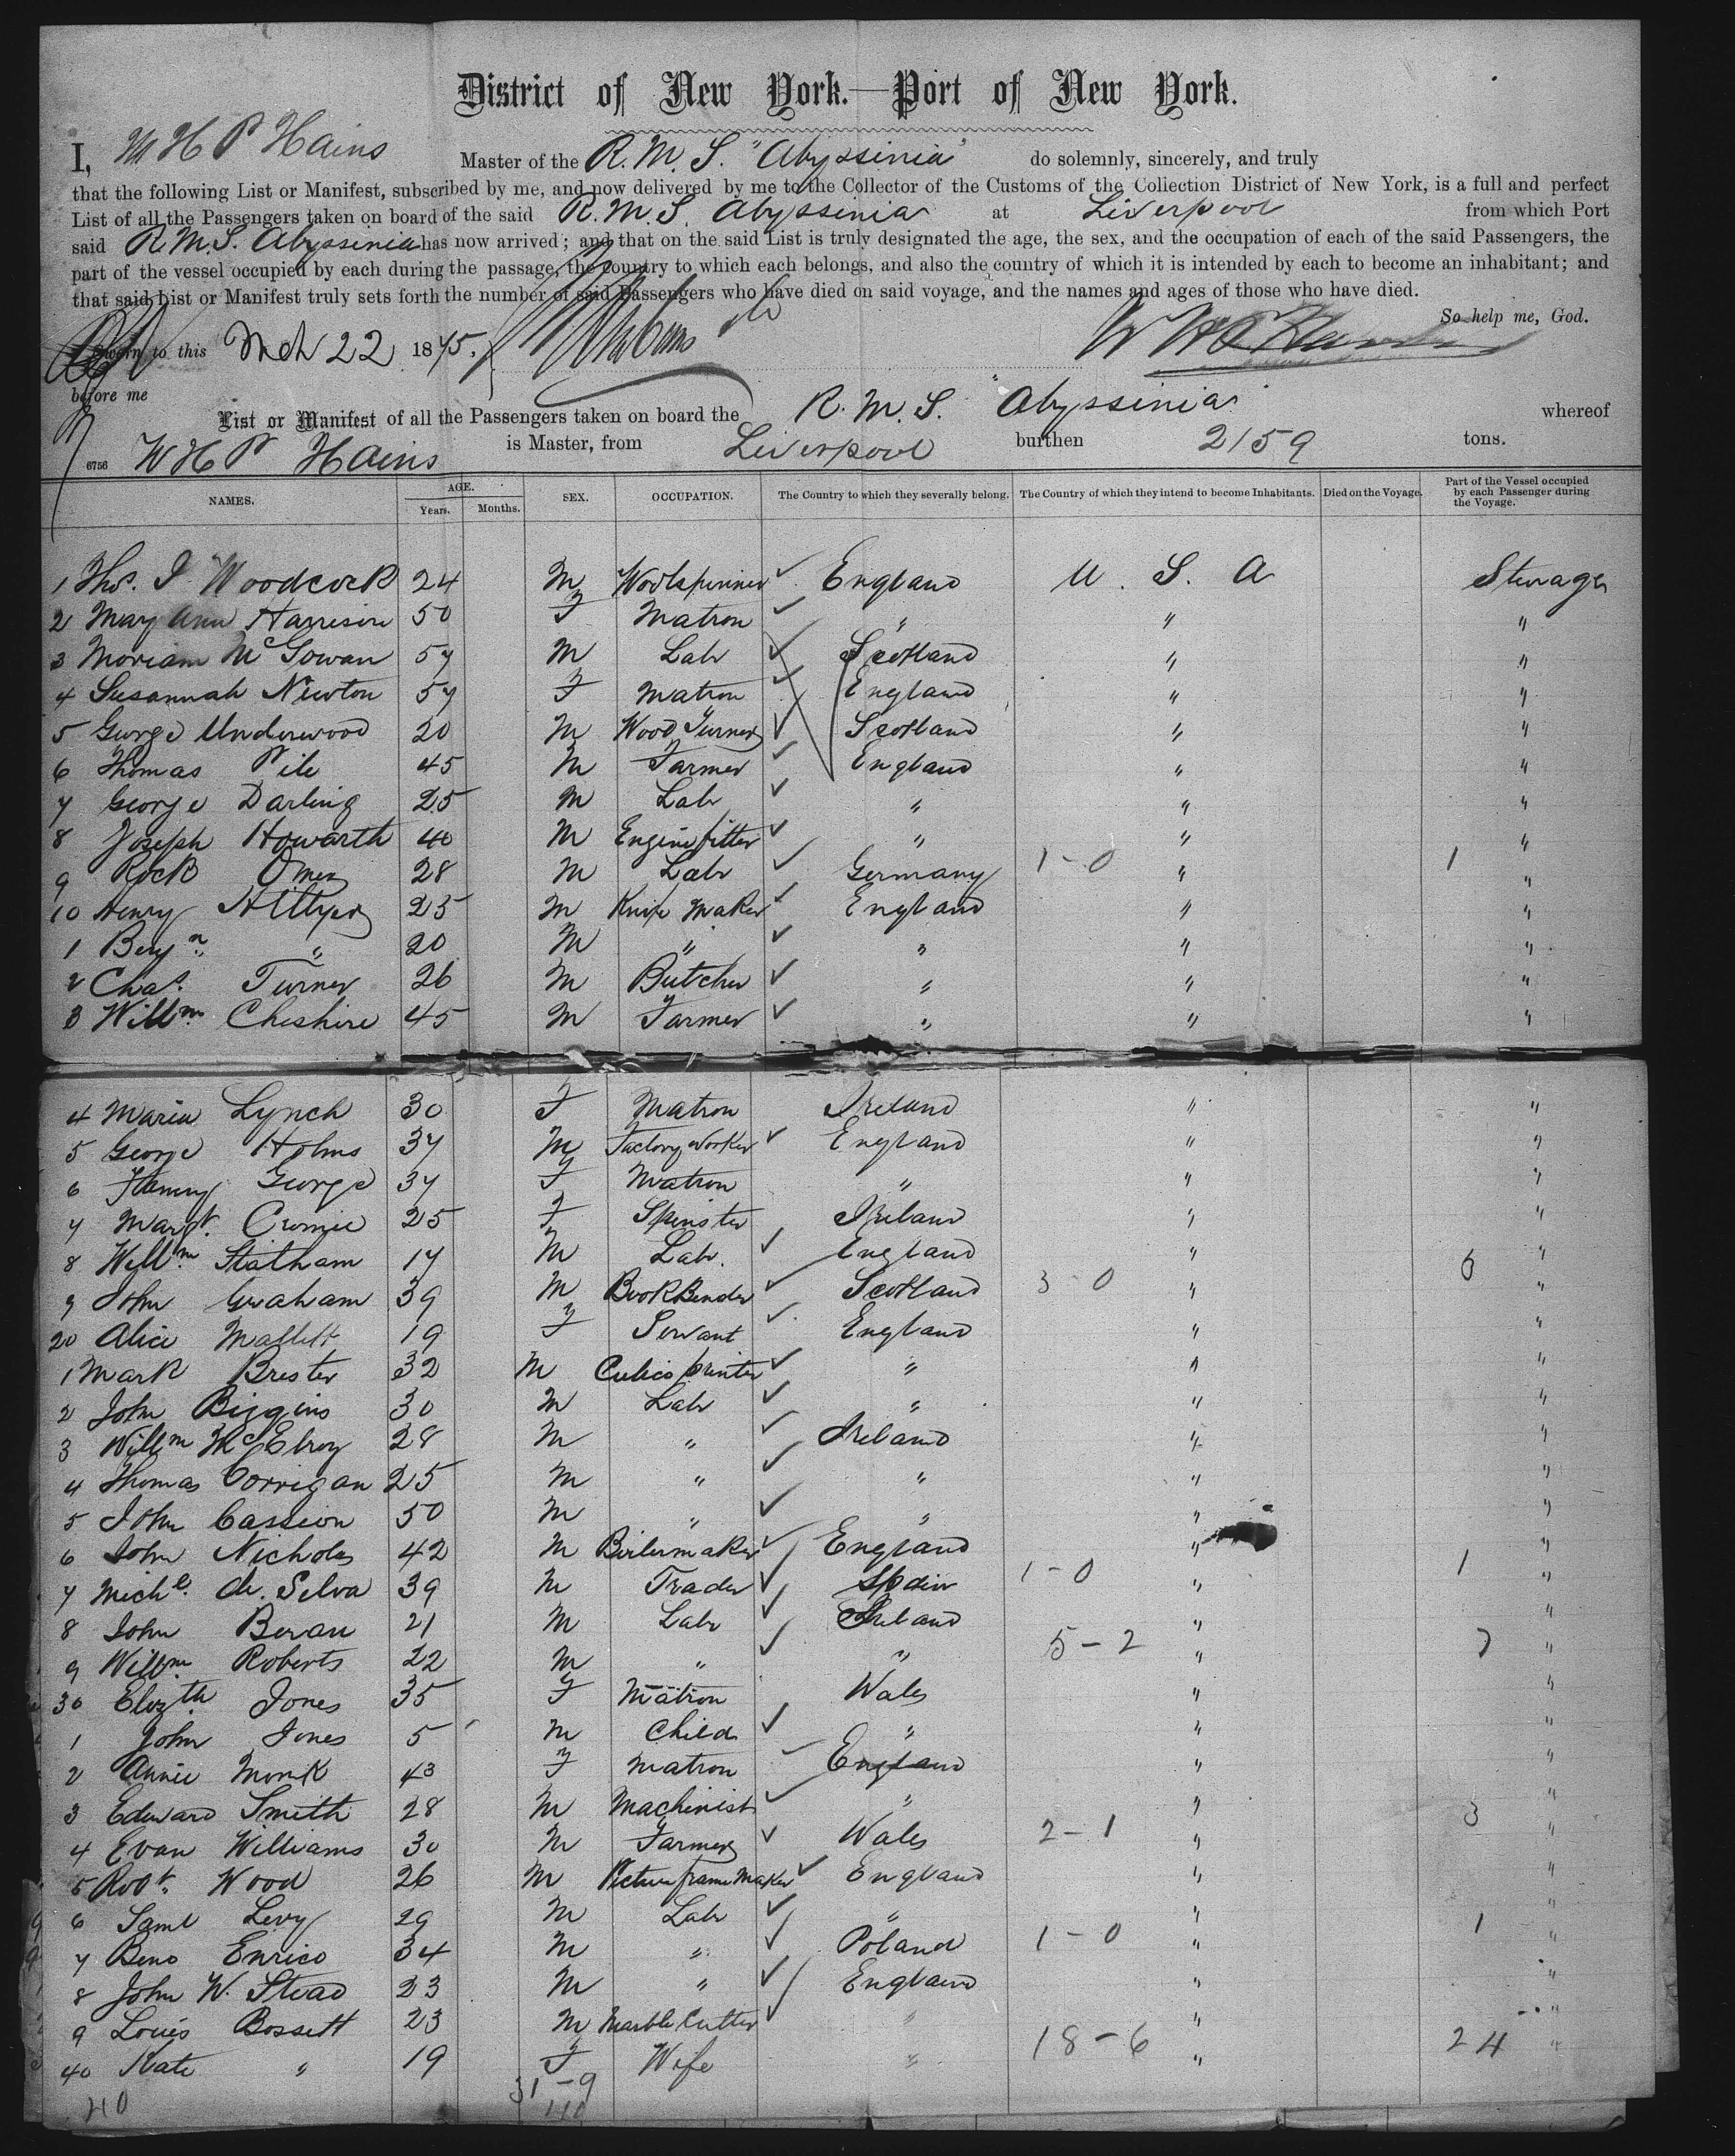 District of New York.—Port of New York.
I, W H P Hains Master of the R. M. S. "Abyssinia" do solemnly, sincerely, and truly
that the following List or Manifest, subscribed by me, and now delivered by me to the Collector of the Customs of the Collection District of New York, is a full and perfect
List of all the Passengers taken on board of the said R. M. S. Abyssinia at Liverpool from which Port
said R. M. S. Abyssinia has now arrived; and that on the said List is truly designated the age, the sex, and the occupation of each of the said Passengers, the
part of the vessel occupied by each during the passage, the country to which each belongs, and also the country of which it is intended by each to become an inhabitant; and
that said List or Manifest truly sets forth the number of said Passengers who have died on said voyage, and the names and ages of those who have died.
So help me, God.
Sworn to this Mch 22 1875. W H P Hains
before me
List or Manifest of all the Passengers taken on board the R. M. S. "Abyssinia" whereof
6756 W H P Hains is Master, from Liverpool burthen 2159 tons.
NAMES. AGE. Years. Months. SEX. OCCUPATION. The Country to which they severally belong. The Country of which they intend to become Inhabitants. Died on the Voyage. Part of the Vessel occupied by each Passenger during the Voyage.
1 Thos. J Woodcock 24 M Woolspinner England U. S. A Steerage
2 Mary Ann Harrison 50 F Matron " " "
3 Moriam McGowan 57 M Labr Scotland " "
4 Susannah Newton 57 F Matron England " "
5 George Underwood 20 M Wood Turner Scotland " "
6 Thomas Pile 45 M Farmer England " "
7 George Darling 25 M Labr " " "
8 Joseph Howarth 40 M Engine fitter " " "
9 Rock Omer 28 M Labr Germany 1-0 " 1 "
10 Henry Hillyer 25 M Knife Maker England " "
1 Benjn. " 20 M " " " "
2 Chas. Turner 26 M Butcher " " "
3 Willm. Cheshire 45 M Farmer " " "
4 Maria Lynch 30 F Matron Ireland " "
5 George Holms 37 M Factory Worker England " "
6 Fanny George 37 F Matron " " "
7 Margt. Cromie 25 F Spinster Ireland " "
8 Willm Statham 17 M Labr. England " 6 "
9 John Graham 39 M BookBinder Scotland 3-0 " "
20 Alice Mallett 19 F Servant England " "
1 Mark Brester 32 M Calico printer " " "
2 John Biggins 30 M Labr " " "
3 Willm McElroy 28 M " Ireland " "
4 Thomas Corrigan 25 M " " " "
5 John Cassion 50 M " " " "
6 John Nicholas 42 M Boilermaker England " "
7 Michl. de Selva 39 M Trader Spain 1-0 " 1 "
8 John Bevan 21 M Labr Ireland " "
9 Willm. Roberts 22 M " " 5-2 " 7 "
30 Elizth. Jones 35 F Matron Wales " "
1 John Jones 5 M Child " " "
2 Annie Monk 43 F Matron England " "
3 Edward Smith 28 M Machinist " " 3 "
4 Evan Williams 30 M Farmer Wales 2-1 " "
5 Robt. Wood 26 M Picture frame Maker England " "
6 Saml Levy 29 M Labr " " "
7 Beno Enrico 34 M " Poland 1-0 " 1 "
8 John W. Stead 23 M " England " "
9 Louis Bossett 23 M Marble Cutter " " "
40 Kate " 19 F Wife " 18-6 " 24 "
40 31-9
40